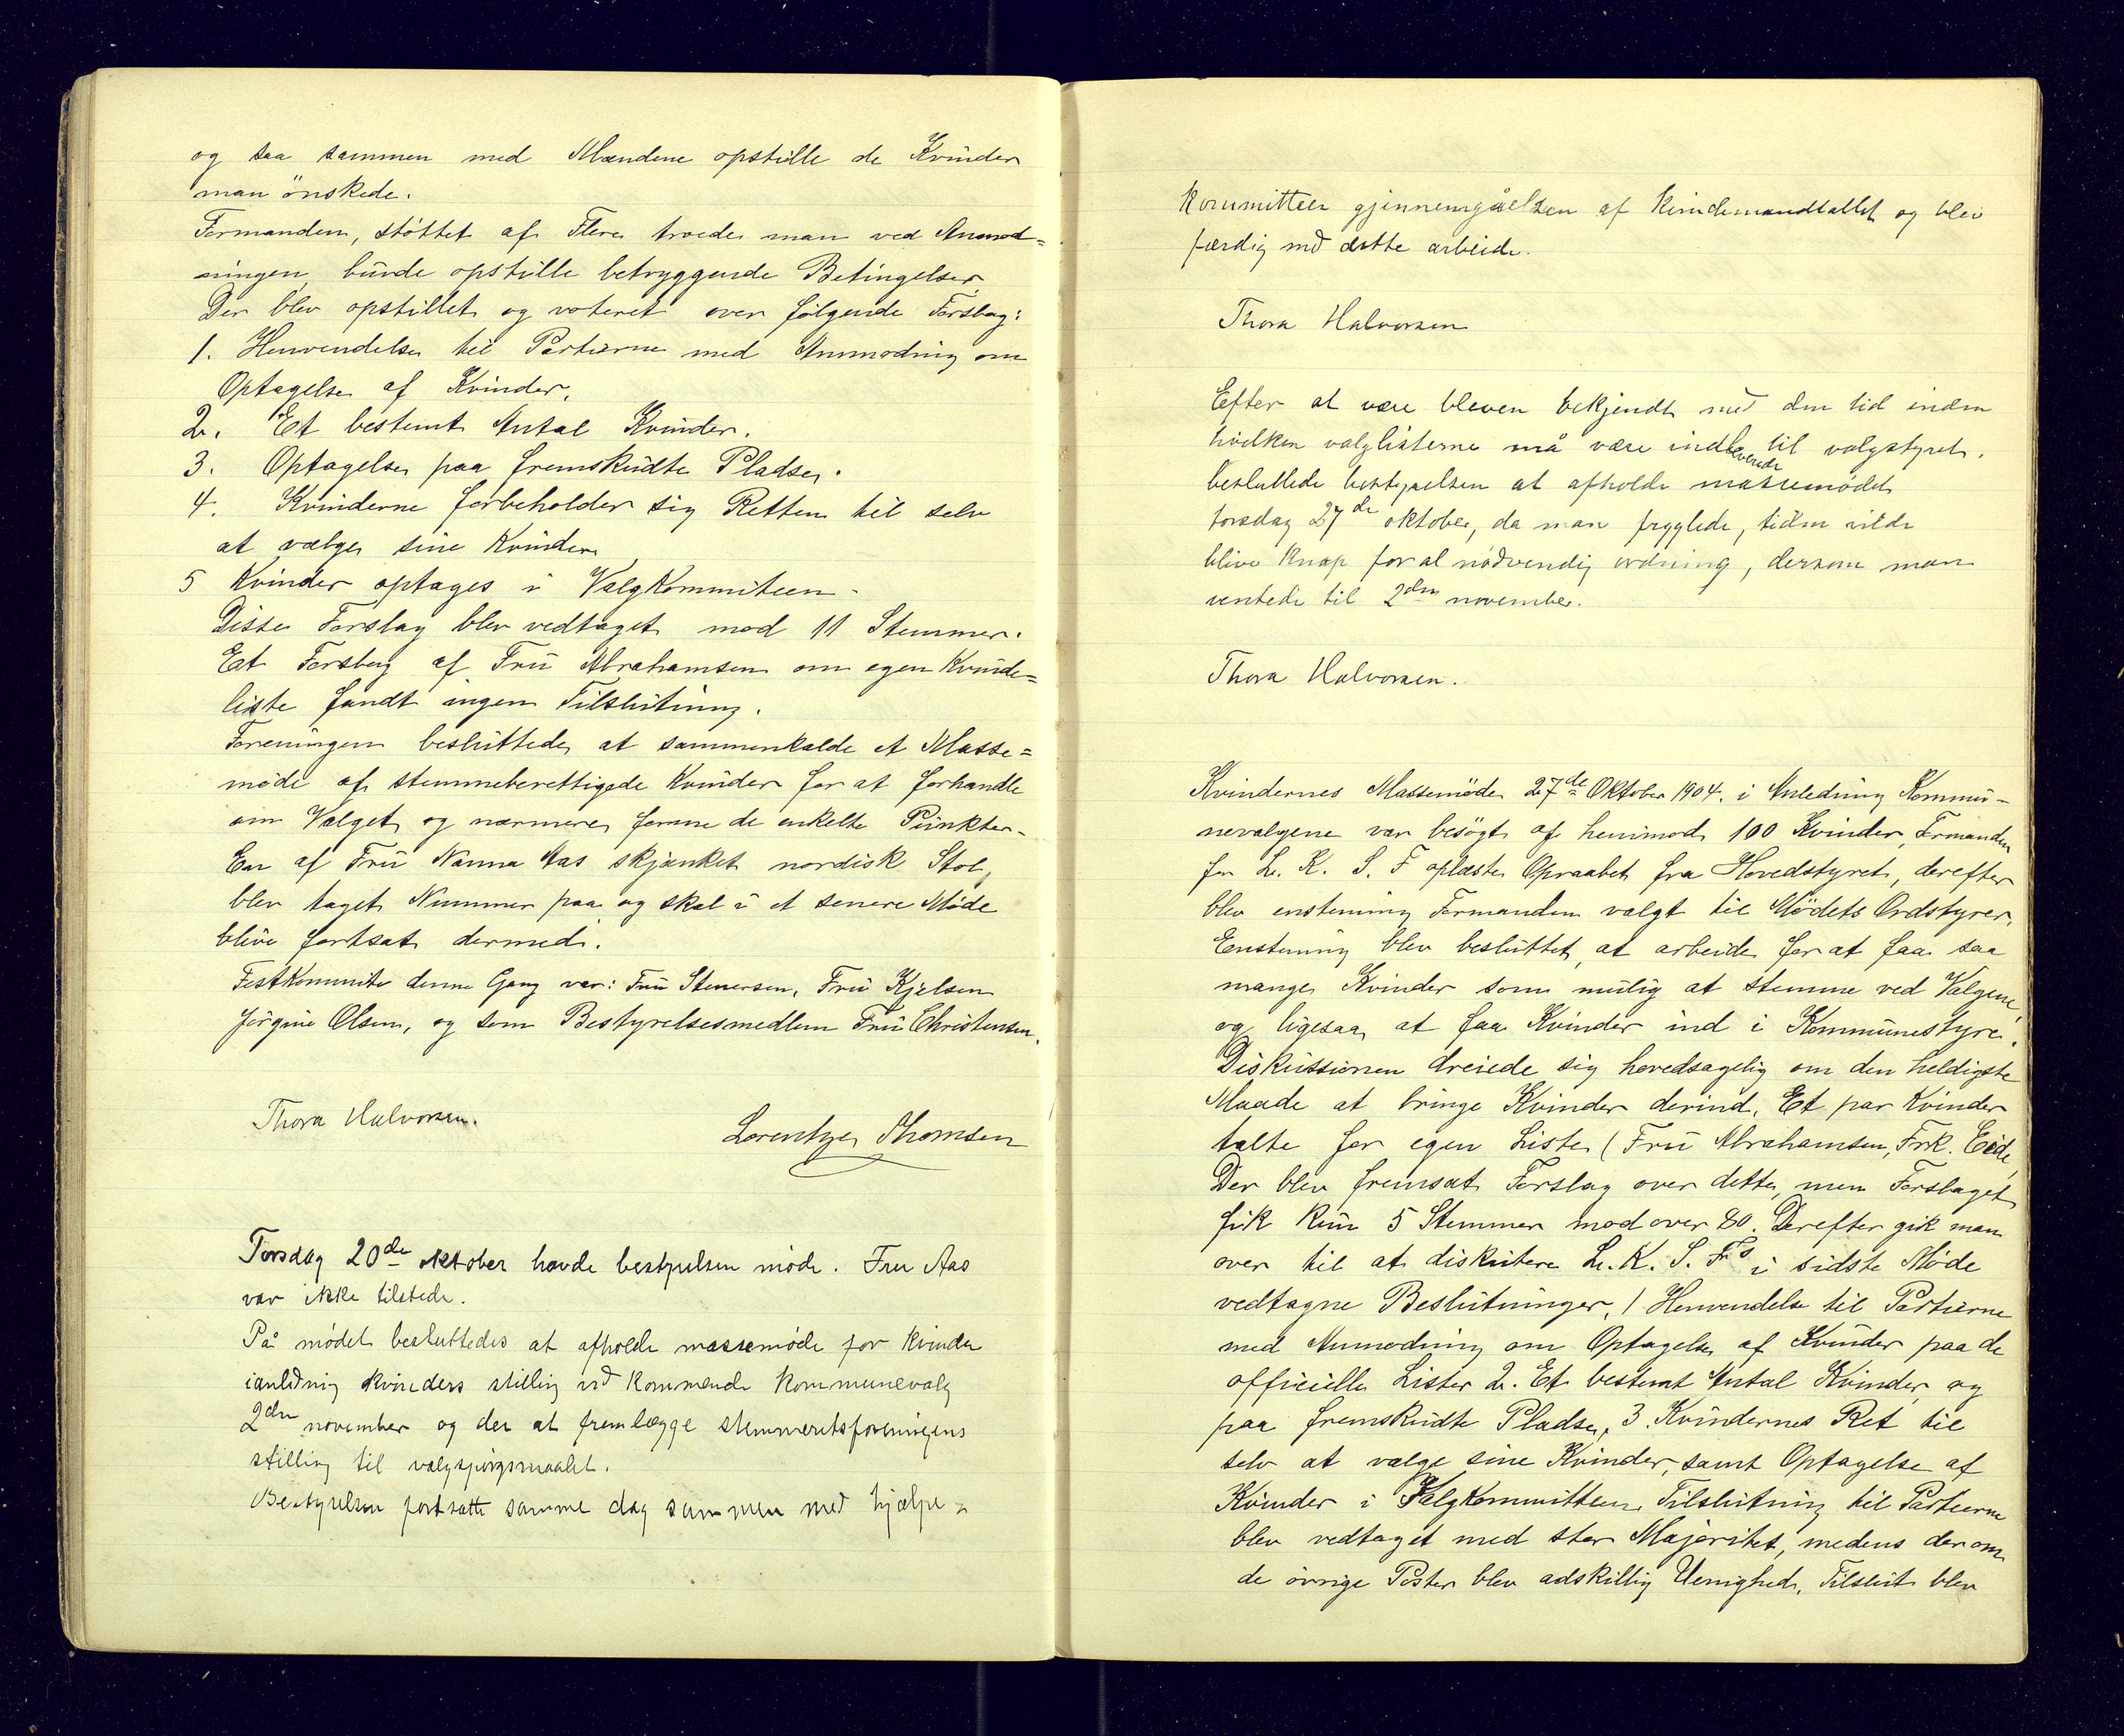 og saa sammen med Mændene opstille de Kvinder
man önskede.
Formanden, støttet af Flere troede man ved Anmod=
ningen burde opstille betryggende Betingelser.
Der blev opstillet og voteret over følgende Forslag:
1. Henvendelse til Partierne med Anmodning om
Optagelse af Kvinder.
2. Et bestemt Antal Kvinder.
3. Optagelse paa fremskudte Pladse.
4. Kvinderne forbeholder sig Retten til selv
at vælge sine Kvinder
5 Kvinder optages i Valgkommiteen.
Disse Forslag blev vedtaget mod 11 Stemmer.
Eat Forslag af Fru Abrahamsen om egen Kvinde=
liste fandt ingen Tilslutning.
Foreningen besluttede at sammenkalde et Masse=
møde af stemmeberettigede Kvinder for at forhandle
om Valget og nærmere forme de enkelte Punkter.
En af Fru Nanna Aas skjænket nordisk Stol,
blev taget Nummer paa og skal i et senere Møde
blive fortsat dermed.
Festkommite denne Gang var: Fru Stenersen, Fru Kjelsen
Jörgine Olsen, og som Bestyrelsesmedlem Fru Christensen.
Thora Halvorsen.
Lorentze Thomsen
Torsdag 20de oktober havde bestyrelsen møde. Fru Aas
var ikke tilstede.
På mødet besluttedes at afholde massemøde for kvinder
ianledning kvinders stilling ved kommende kommunevalg
2den november og der at fremlægge stemmeretsforeningens
stilling til valgspørgsmaalet.
Bestyrelsen fortsatte samme dag sammen med hjælpe=
kommitteen gjennemgåelsen af kvindemandtallet og blev
færdig med dette arbeide.
Thora Halvorsen
Efter at være bleven bekjendt med den tid inden
hvilken valglisterne må være indleverede til valgstyret,
besluttede bestyrelsen at afholde massemødet
torsdag 27de oktober, da man frygtede, tiden vilde
blive knap for al nødvendig ordning, dersom man
ventede til 2den november.
Thora Halvorsen.
Kvindernes Massemöde 27de Oktober 1904. i Anledning Kommu-
nevalgene var besögt af henimod 100 Kvinder, Formanden
for L. K. S. F oplæste Opraabet fra Hovedstyret, derefter
blev enstemmig Formanden valgt til Mödets Ordstyrer.
Eenstemmig blev besluttet, at arbeide for at faa saa
mange Kvinder som mulig at stemme ved Valgene,
og ligesaa at faa Kvinder ind i Kommunestyre.
Diskussionen dreiede sig hovedsagelig om den heldigste
Maade at bringe Kvinder derind. Et par Kvinder
talte for egen Liste (Fru Abrahamsen, Frk. Eide,
Der blev fremsat Forslag over dette, men Forslaget
fik kun 5 Stemmer mod over 80. Derefter gik man
over til at diskutere L. K. S. F's i sidste Möde
vedtagne Beslutninger, 1 Henvendelse til Partierne
med Anmodning om Optagelse af Kvinder paa de
officielle Lister 2. Et bestemt Antal Kvinder, og
paa fremskudte Pladse, 3. Kvindernes Ret til
selv at vælge sine Kvinder, samt Optagelse af
Kvinder i Valgkommitteen. Tilslutning til Partierne
blev vedtaget med stor Majoritet, medens der om
de övrige Poster blev adskillig Uenighed. Tilslut blev